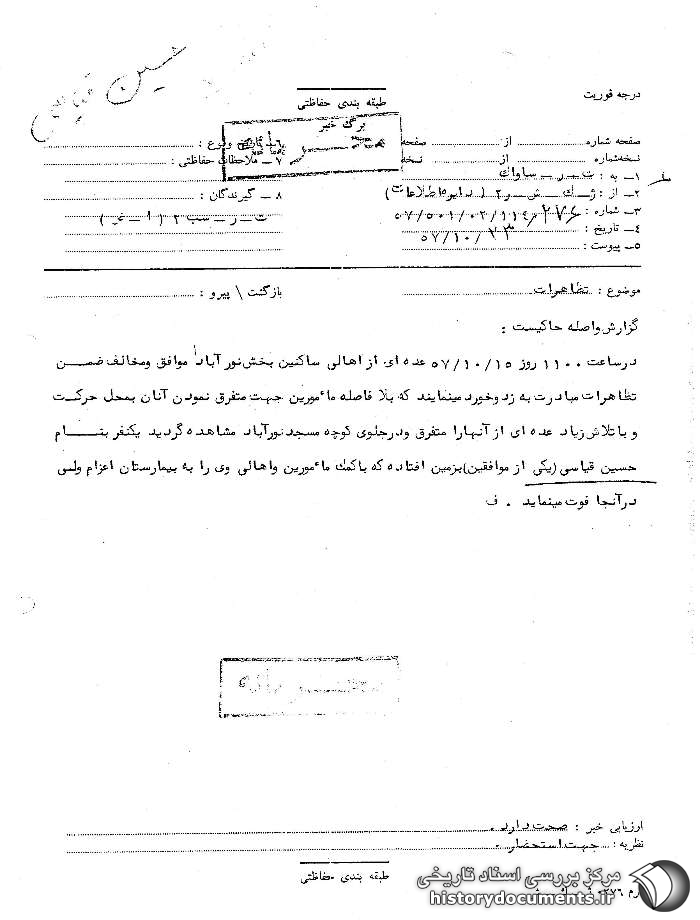 حسین قیاسی
درجه فوریت
طبقه بندی حفاظتی
برگ خبر
صفحه شماره از صفحه
نسخه‌شماره از نسخه
۱ـ به : ت ـ ر ـ ساواك
۲ـ از : ژ ـ ك ـ ش ـ ر۲ (دایره اطلاعات)
۳ـ شماره : ۵۷/۵۰۱/۰۲/۱۱٤/۲۷۶
٤ـ تاریخ : ۵۷/۱۰/۲۳
۵ـ پیوست :
۶ـ تاریخ وقوع :
۷ـ ملاحظات حفاظتی :
۸ـ گیرندگان :
موضوع : تظاهرات
بازگشت \ پیرو :
گزارش واصله حاکیست :
درساعت ۱۱۰۰ روز ۵۷/۱۰/۱۵ عده ای از اهالی ساکنین بخش نورآباد موافق ومخالف ضمن
تظاهرات مبادرت به زدوخورد مینمایند که بلا فاصله مأمورین جهت متفرق نمودن آنان بمحل حرکت
و با تلاش زیاد عده ای از آنهارا متفرق ودرجلوی کوچه مسجد نورآباد مشاهده گردید یکنفر بنام
حسین قیاسی (یکی از موافقین) بزمین افتاده که باکمك مأمورین واهالی وی را به بیمارستان اعزام ولی
درآنجا فوت مینماید . ف
ارزیابی خبر : صحت دارد .
نظریه : جهت استحضار .
طبقه بندی حفاظتی
مرکز بررسی اسناد تاریخی
historydocuments.ir